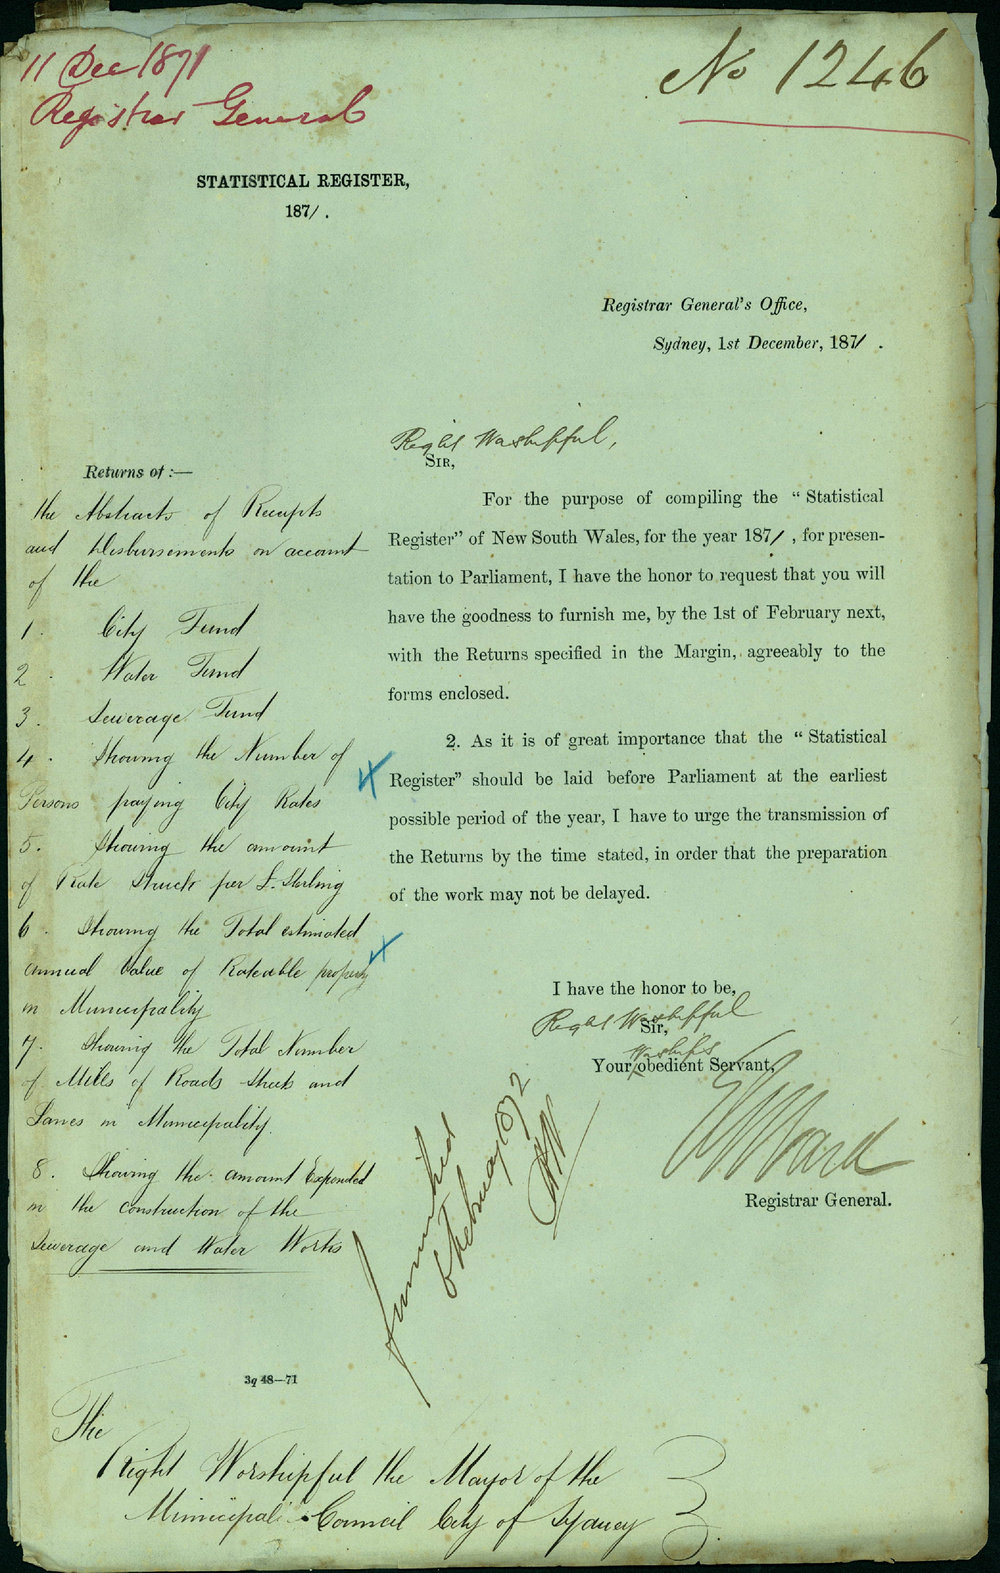 11 Dec 1871
Registrar General
No 1246
STATISTICAL REGISTER,
1871.
Registrar General's Office,
Sydney, 1st December, 1871.
Right Worshipful,
SIR,
For the purpose of compiling the "Statistical
Register" of New South Wales, for the year 1871, for presen-
tation to Parliament, I have the honor to request that you will
have the goodness to furnish me, by the 1st of February next,
with the Returns specified in the Margin, agreeably to the
forms enclosed.
2. As it is of great importance that the "Statistical
Register" should be laid before Parliament at the earliest
possible period of the year, I have to urge the transmission of
the Returns by the time stated, in order that the preparation
of the work may not be delayed.
I have the honor to be,
Right Worshipful
Sir,
Worship's
Your obedient Servant,
Ward
Registrar General.
Returns of :—
the Abstracts of Receipts
and Disbursements on account
of the
1. City Fund
2. Water Fund
3. Sewerage Fund
4. Showing the Number of
Persons paying City Rates
5. Showing the amount
of Rate Struck per £. Sterling
6. Showing the Total estimated
annual Value of Rateable property
in Municipality
7. Showing the Total Number
of Miles of Roads Streets and
Lanes in Municipality.
8. Showing the amount Expended
in the Construction of the
Sewerage and Water Works
furnished
6 February 1872
3q 48—71
The
Right Worshipful the Mayor of the
Municipal Council City of Sydney